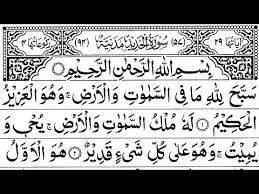 اٰیاتُهَا ۲۹ (۵۷) سُوْرَةُ الْحَدِیْدِ مَدَنِیَّةٌ (۹۴) رُکُوْعَاتُهَا ۴
بِسْمِ اللّٰهِ الرَّحْمٰنِ الرَّحِیْمِ
سَبَّحَ لِلّٰهِ مَا فِی السَّمٰوٰتِ وَالْاَرْضِ ۚ وَهُوَ الْعَزِیْزُ
الْحَکِیْمُ ۝۱ لَهٗ مُلْكُ السَّمٰوٰتِ وَالْاَرْضِ ۚ یُحْیٖ وَ
یُمِیْتُ ۚ وَهُوَ عَلٰی کُلِّ شَیْءٍ قَدِیْرٌ ۝۲ هُوَ الْاَوَّلُ